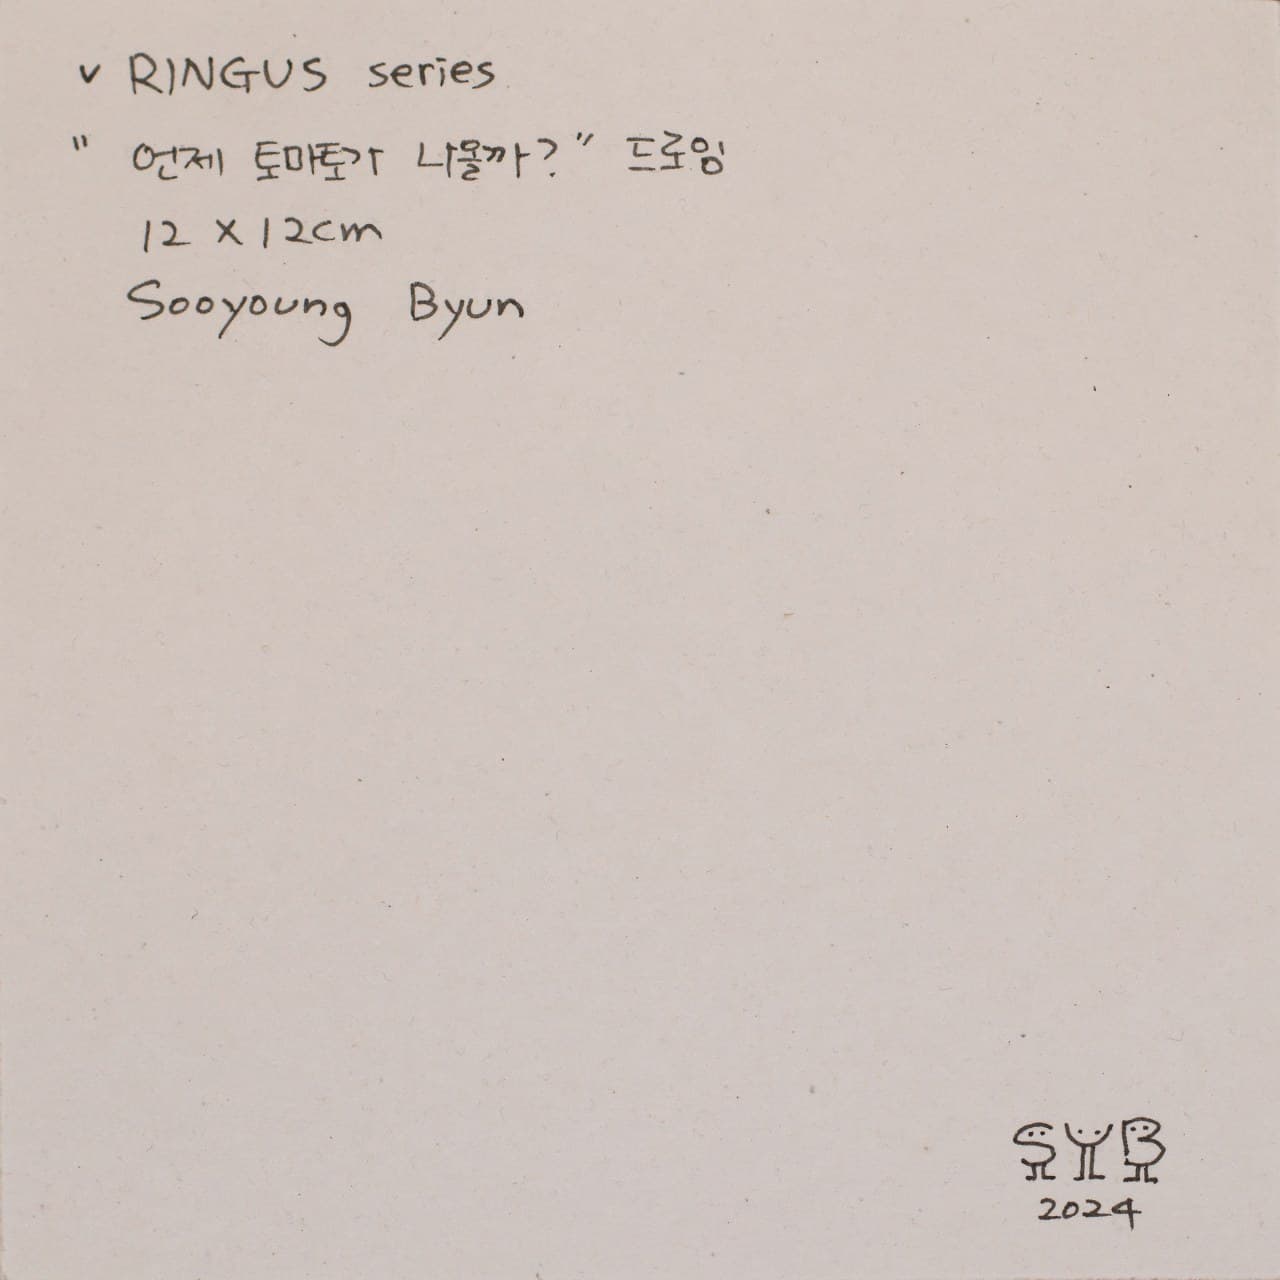 v RINGUS series
" 언제 토마토가 나올까? " 드로잉
12 x 12cm
Sooyoung Byun
SYB
2024